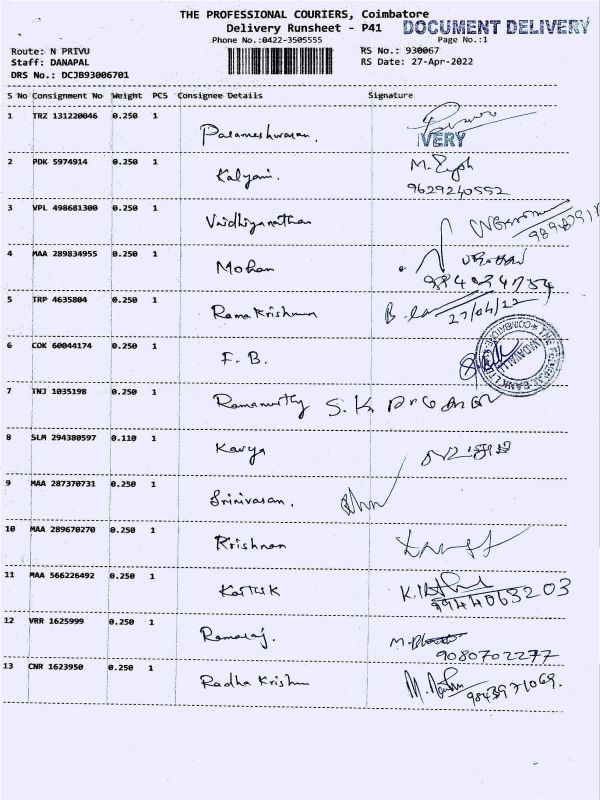 THE PROFESSIONAL COURIERS, Coimbatore
Delivery Runsheet - P41 DOCUMENT DELIVERY
Phone No.:0422-3505555 Page No.:1
Route: N PRIVU RS No.: 930067
Staff: DANAPAL RS Date: 27-Apr-2022
DRS No.: DCJB93006701
S No Consignment No Weight PCS Consignee Details Signature
1 TRZ 131220046 0.250 1 Parameshwaran.
VERY
2 PDK 5974914 0.250 1 Kalyani.
9629240552
3 VPL 498681300 0.250 1 Vaidhiyanathan
4 MAA 289834955 0.250 1 Mohan
5 TRP 4635804 0.250 1 Rama Krishnan
27/04/22
6 COK 60044174 0.250 1 F.B.
7 TNJ 1035198 0.250 1 Ramamurthy S.K
8 SLM 294380597 0.110 1 Kavya
9 MAA 287370731 0.250 1 Srinivasan.
10 MAA 289670270 0.250 1 Krishnan
11 MAA 566226492 0.250 1 Kartik
9944063203
12 VRR 1625999 0.250 1 Ramaraj.
9080702277
13 CNR 1623950 0.250 1 Radha Krishnan
9843971069.